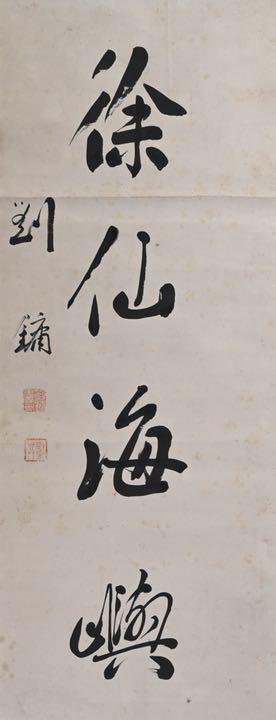 徐仙海嶼
劉鏞